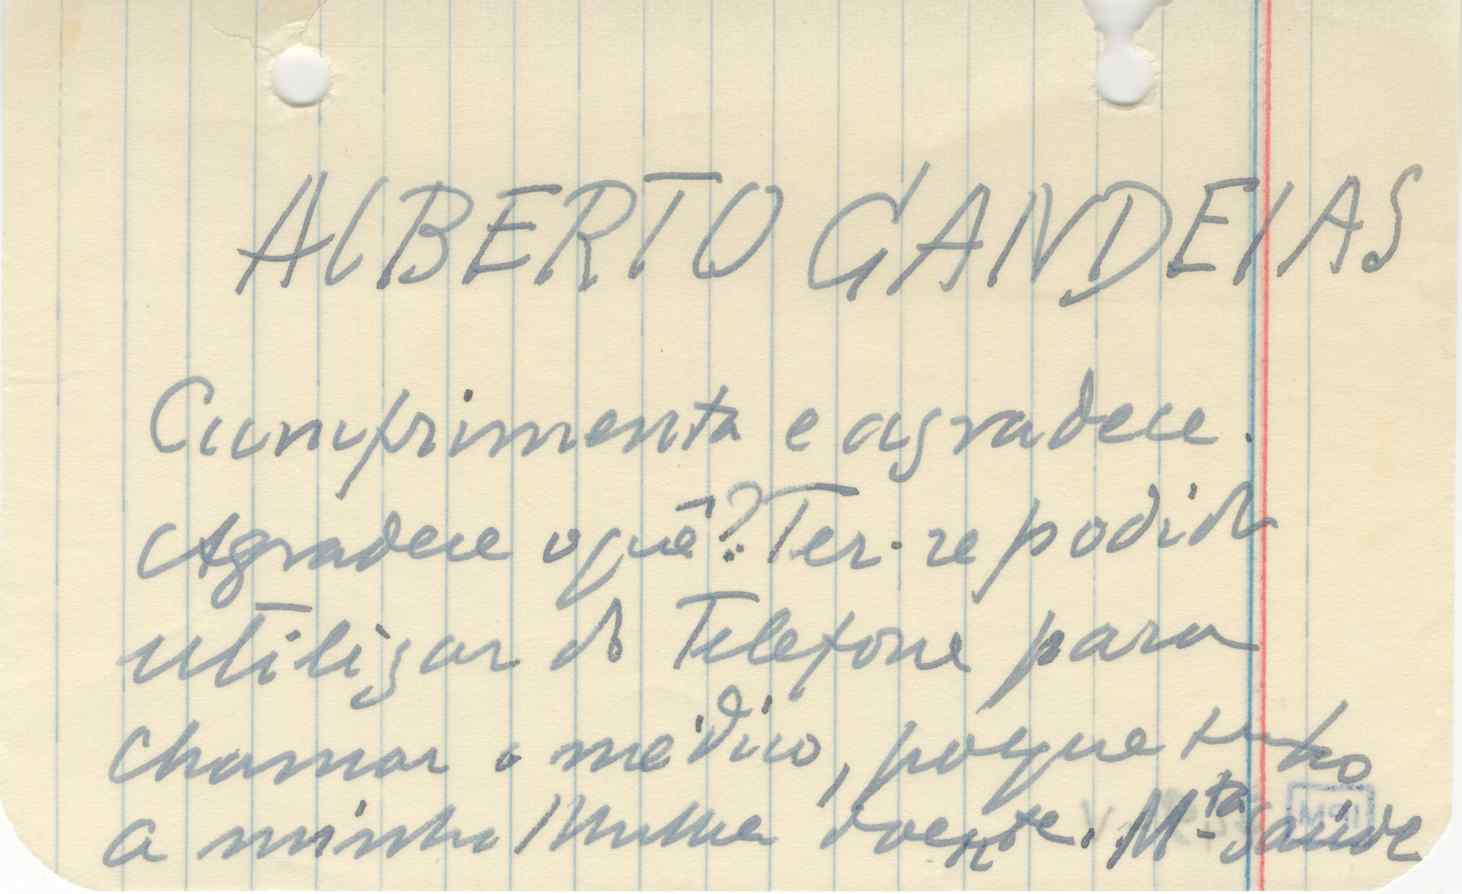 ALBERTO CANDEIAS
Cumprimenta e agradece.
Agradece o quê? Ter-se podido
utilizar do Telefone para
chamar o médico, porque tenho
a minha Mulher doente. M.ta saúde